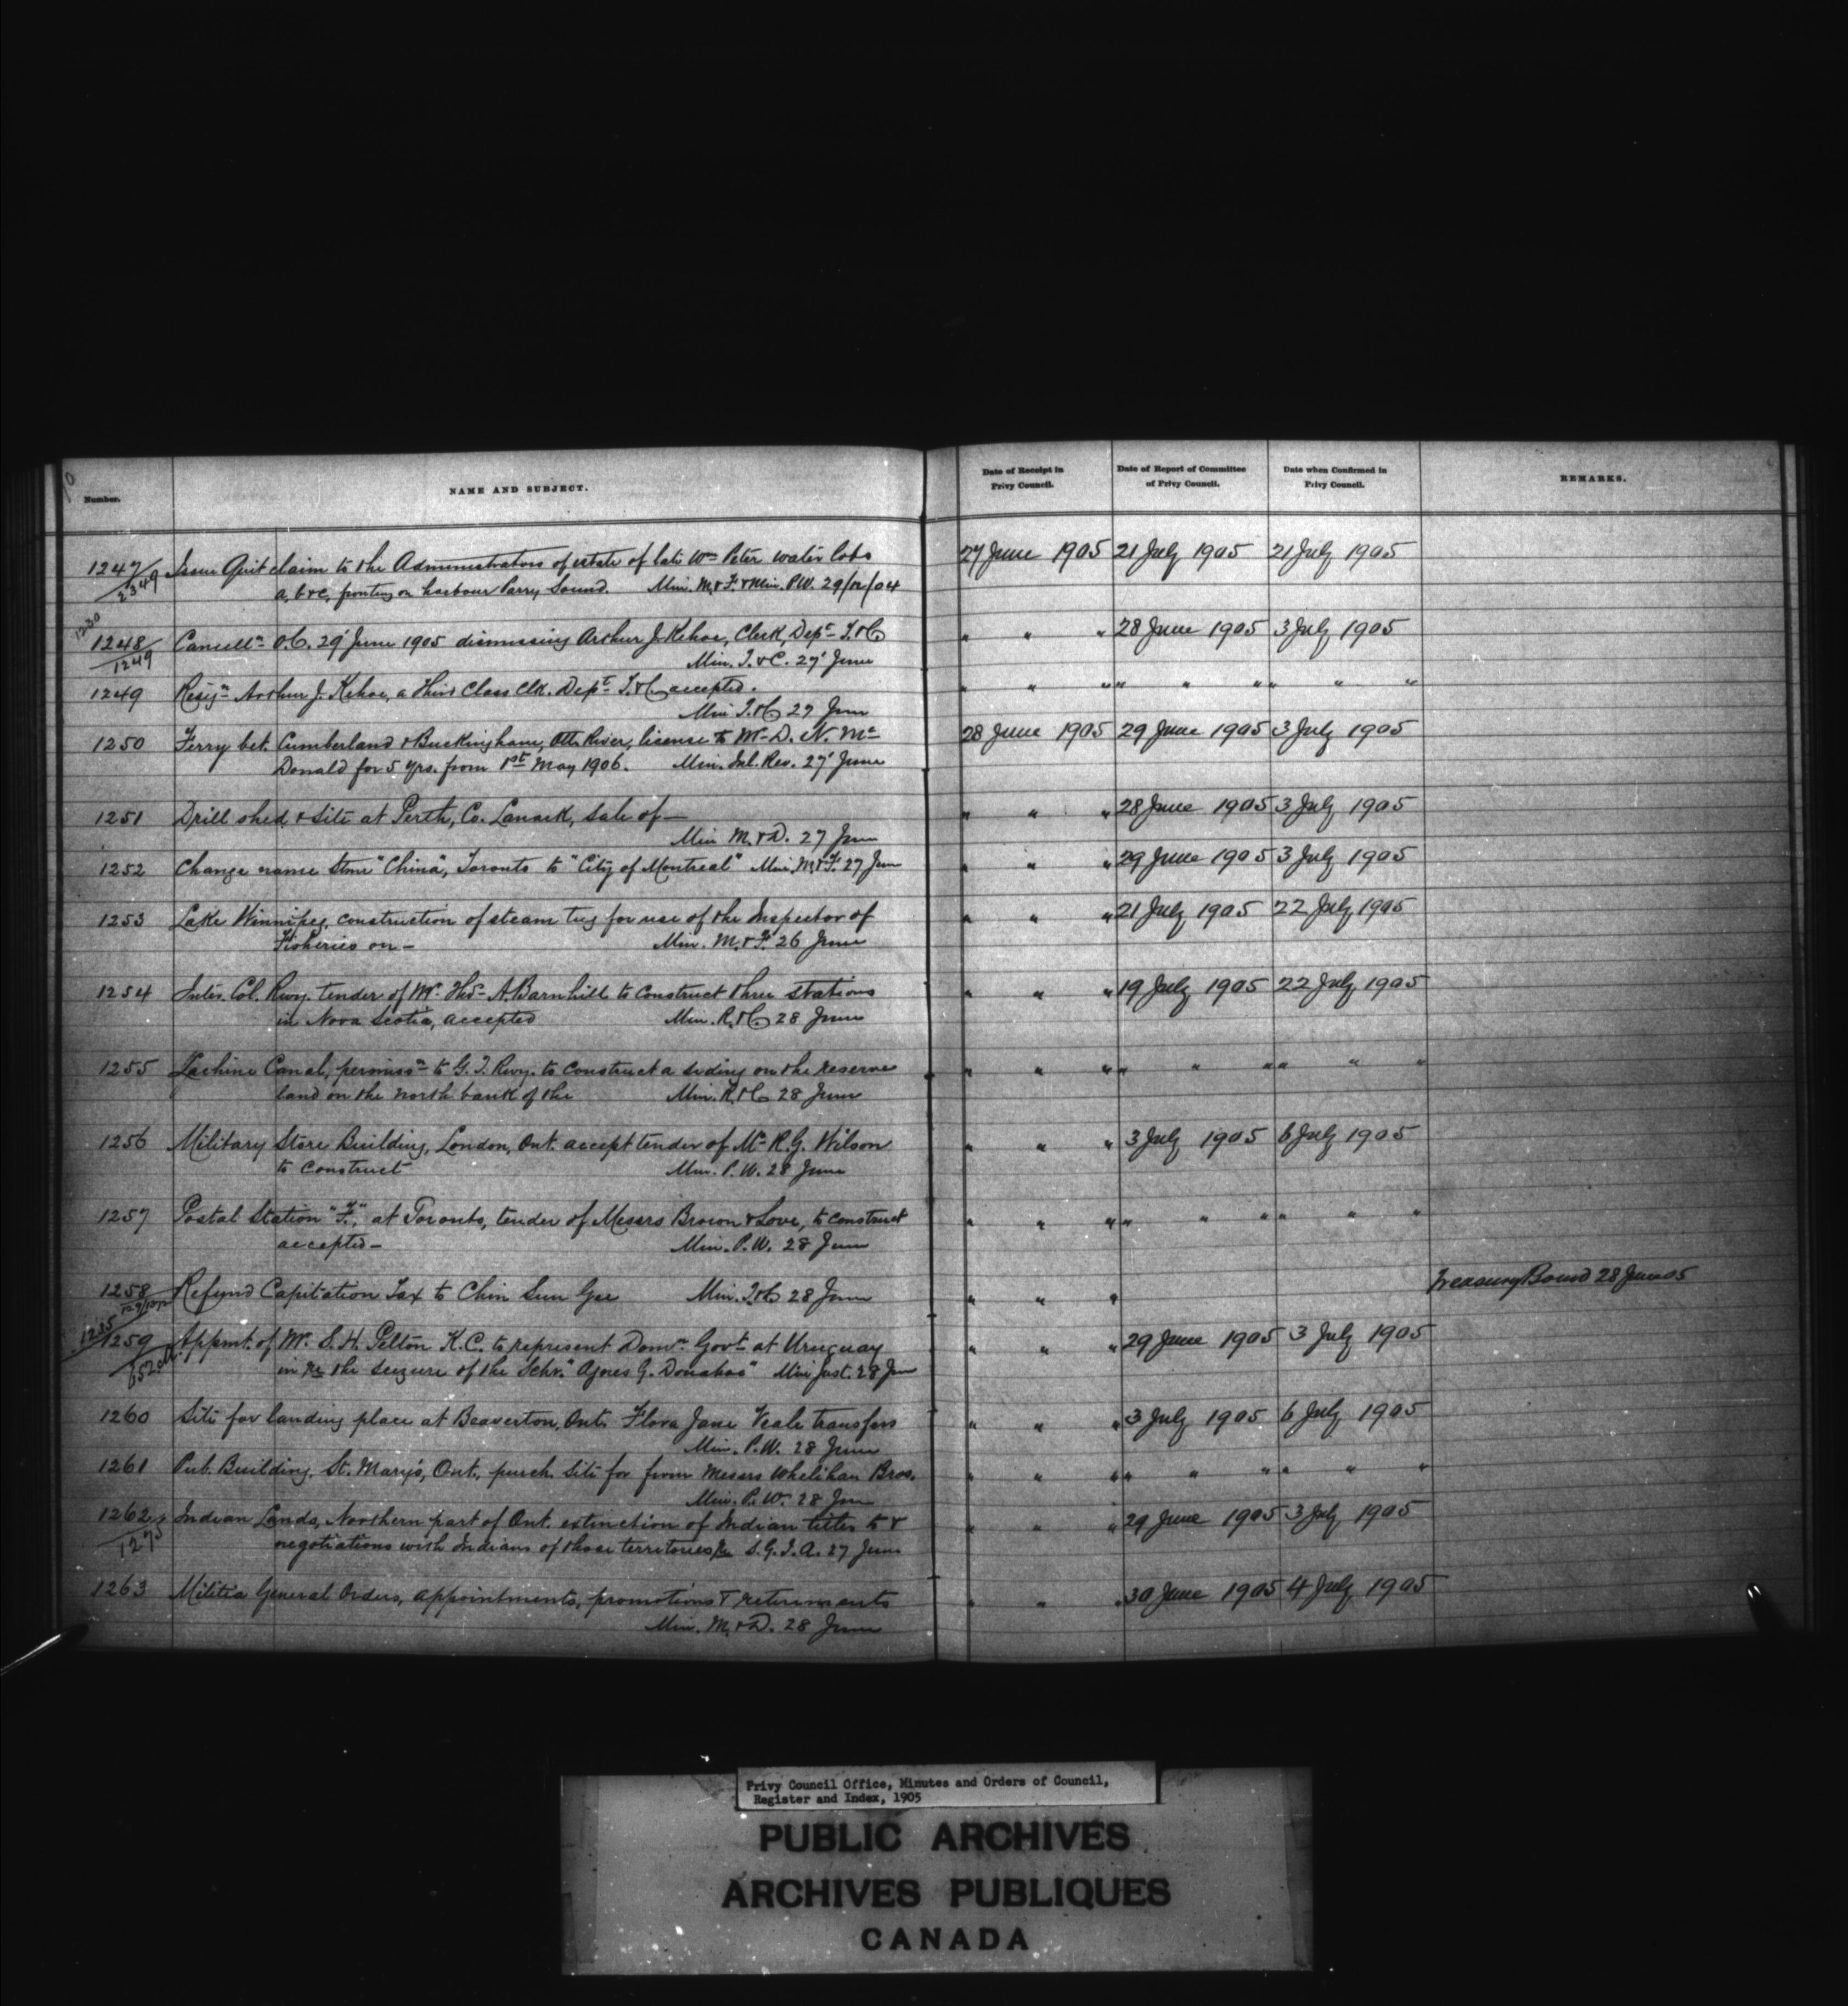 Number. NAME AND SUBJECT. Date of Receipt in Privy Council. Date of Report of Committee of Privy Council. Date when Confirmed in Privy Council. REMARKS.
1247 Issue Quit claim to the Administrators of estate of late Wm Peter water lots 27 June 1905 21 July 1905 21 July 1905
2349 a, b & c, fronting on harbour Parry Sound. Min. M. & F. & Min. P.W. 29/12/04
1230
1248 Cancelln O.C. 29' June 1905 dismissing Arthur J. Kehoe, Clerk, Dept T. & C " " " 28 June 1905 3 July 1905
1249 Min. T. & C. 27' June
1249 Resign Arthur J. Kehoe, a Third Class Clk. Dept T. & C accepted. " " " " " " " " "
Min T. & C 27 June
1250 Ferry bet. Cumberland & Buckingham, Otta River, license to Mr D. N. Mc 28 June 1905 29 June 1905 3 July 1905
Donald for 5 yrs. from 1st May 1906. Min. Inl. Rev. 27' June
1251 Drill shed & Site at Perth, Co. Lanark, sale of — " " " 28 June 1905 3 July 1905
Min M. & D. 27 June
1252 Change name Stmr "China", Toronto to "City of Montreal" Min. M. & F. 27 Jun " " " 29 June 1905 3 July 1905
1253 Lake Winnipeg, construction of steam tug for use of the Inspector of " " " 21 July 1905 22 July 1905
Fisheries on — Min. M. & F. 26 June
1254 Inter. Col. Rwy. tender of Mr Thos A. Barnhill to construct three stations " " " 19 July 1905 22 July 1905
in Nova Scotia, accepted Min. R. & C 28 June
1255 Lachine Canal, permissn to G. T. Rwy. to construct a siding on the reserve " " " " " " " " "
land on the north bank of the Min. R. & C 28 June
1256 Military Store Building, London, Ont. accept tender of Mr R. G. Wilson " " " 3 July 1905 6 July 1905
to construct Min. P. W. 28 June
1257 Postal Station "F.", at Toronto, tender of Messrs Brown & Love, to construct " " " " " " " " "
accepted — Min. P. W. 28 June
1258 Refund Capitation Tax to Chin Sun Gee Min. T. & C 28 June " " " Treasury Board 28 June 05
1235
1259 Appmt. of Mr. S. H. Pelton K.C. to represent Domn Govt at Uruguay " " " 29 June 1905 3 July 1905
in re the seizure of the Schr. "Agnes G. Donahoe" Min Just. 28 Jun
1260 Site for landing place at Beaverton, Ont. Flora Jane Veale transfers " " " 3 July 1905 6 July 1905
Min. P. W. 28 June
1261 Pub. Building, St. Mary's, Ont., purch. site for from Messrs Whelihan Bros. " " " " " " " " "
Min. P. W. 28 Jun
1262 Indian Lands, Northern part of Ont. extinction of Indian titles to & " " " 29 June 1905 3 July 1905
1275 negotiations with Indians of those territories re S. G. I. A. 27 June
1263 Militia General Orders, appointments, promotions & retirements " " " 30 June 1905 4 July 1905
Min. M. & D. 28 June
Privy Council Office, Minutes and Orders of Council,
Register and Index, 1905
PUBLIC ARCHIVES
ARCHIVES PUBLIQUES
CANADA